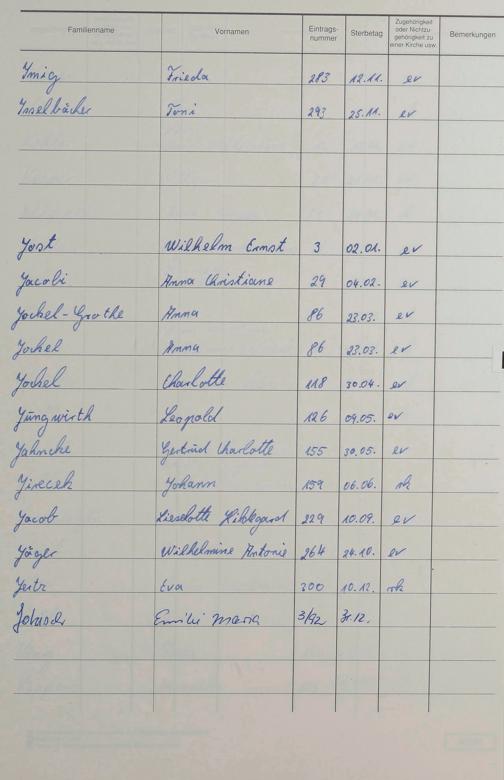 Familienname Vornamen Eintrags-nummer Sterbetag Zugehörigkeit oder Nichtzu-gehörigkeit zu einer Kirche usw. Bemerkungen
Imig Frieda 283 12.11. ev
Isselbächer Toni 293 25.11. ev
Jost Wilhelm Ernst 3 02.01. ev
Jacobi Anna Christiane 29 04.02. ev
Jockel-Grothe Anna 86 23.03. ev
Jockel Anna 86 23.03. ev
Jockel Charlotte 118 30.04. ev
Jüngwirth Leopold 126 09.05. ev
Jahncke Gertrud Charlotte 155 30.05. ev
Jirecek Johann 159 06.06. rk
Jacob Lieselotte Hildegard 229 10.09. ev
Jäger Wilhelmine Antonie 264 24.10. ev
Eva 300 10.12. rk
Emilie Maria 3/92 31.12.